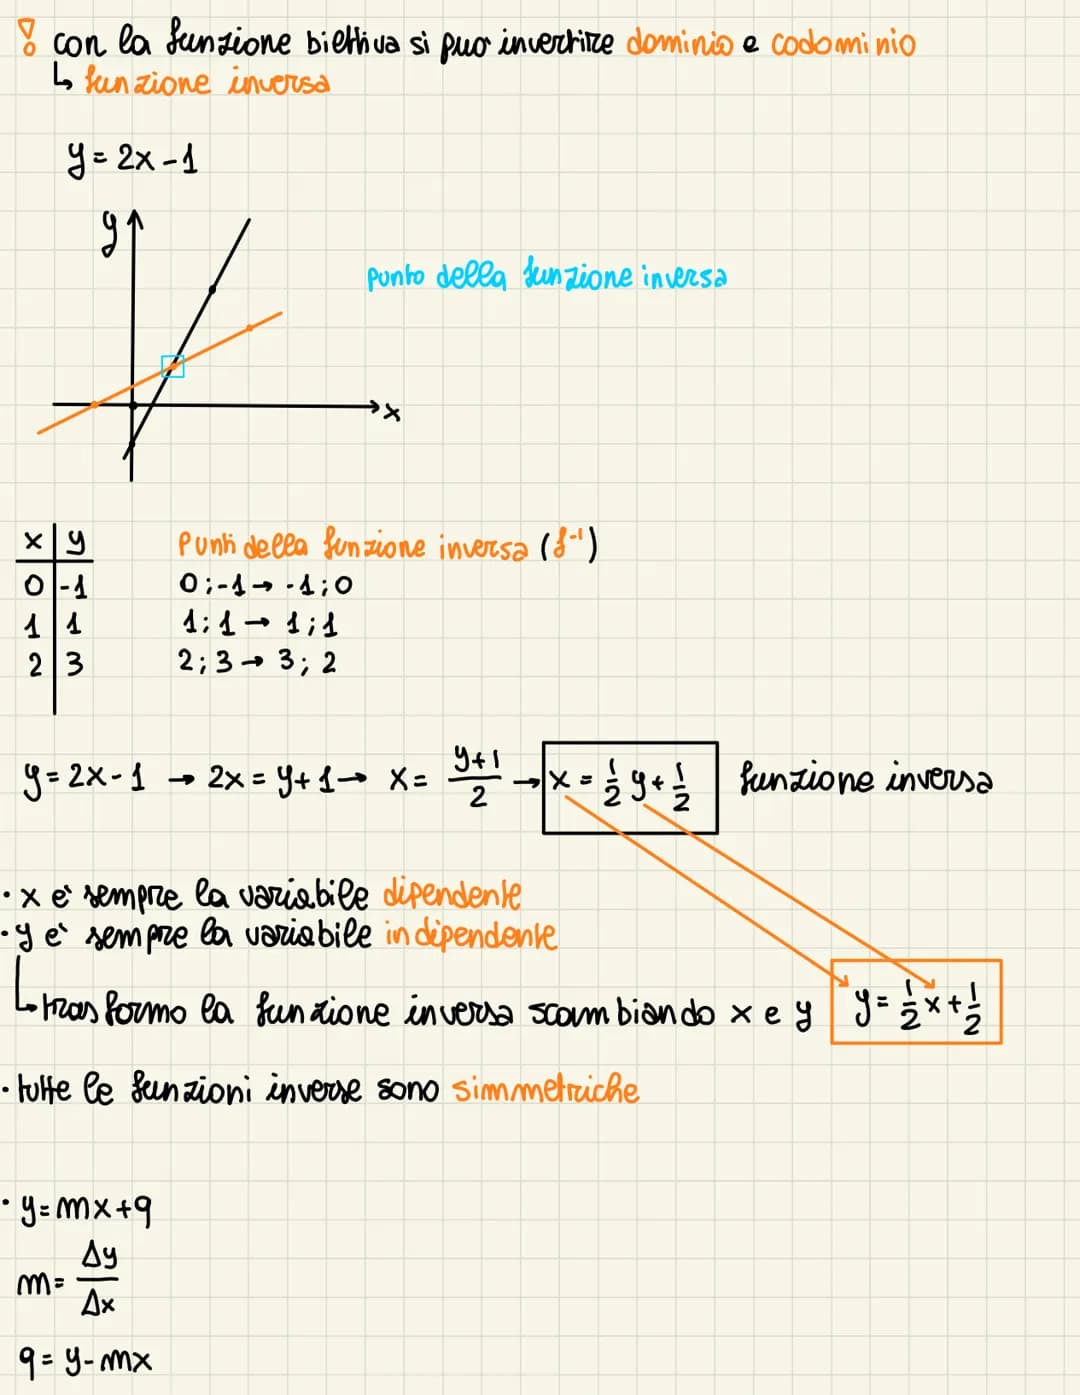 ! con la funzione biettiva si può invertire dominio e codominio
↳ funzione inversa
y = 2x - 1
y
punto della funzione inversa
x
x | y
Punti della funzione inversa (f⁻¹)
0 | -1
0 ; -1 → -1 ; 0
1 | 1
1 ; 1 → 1 ; 1
2 | 3
2 ; 3 → 3 ; 2
y = 2x - 1 → 2x = y + 1 → x = (y+1)/2 → x = 1/2 y + 1/2 funzione inversa
· x è sempre la variabile dipendente
· y è sempre la variabile indipendente
↳ trasformo la funzione inversa scambiando x e y y = 1/2 x + 1/2
· tutte le funzioni inverse sono simmetriche
· y = mx + q
m = Δy/Δx
q = y - mx